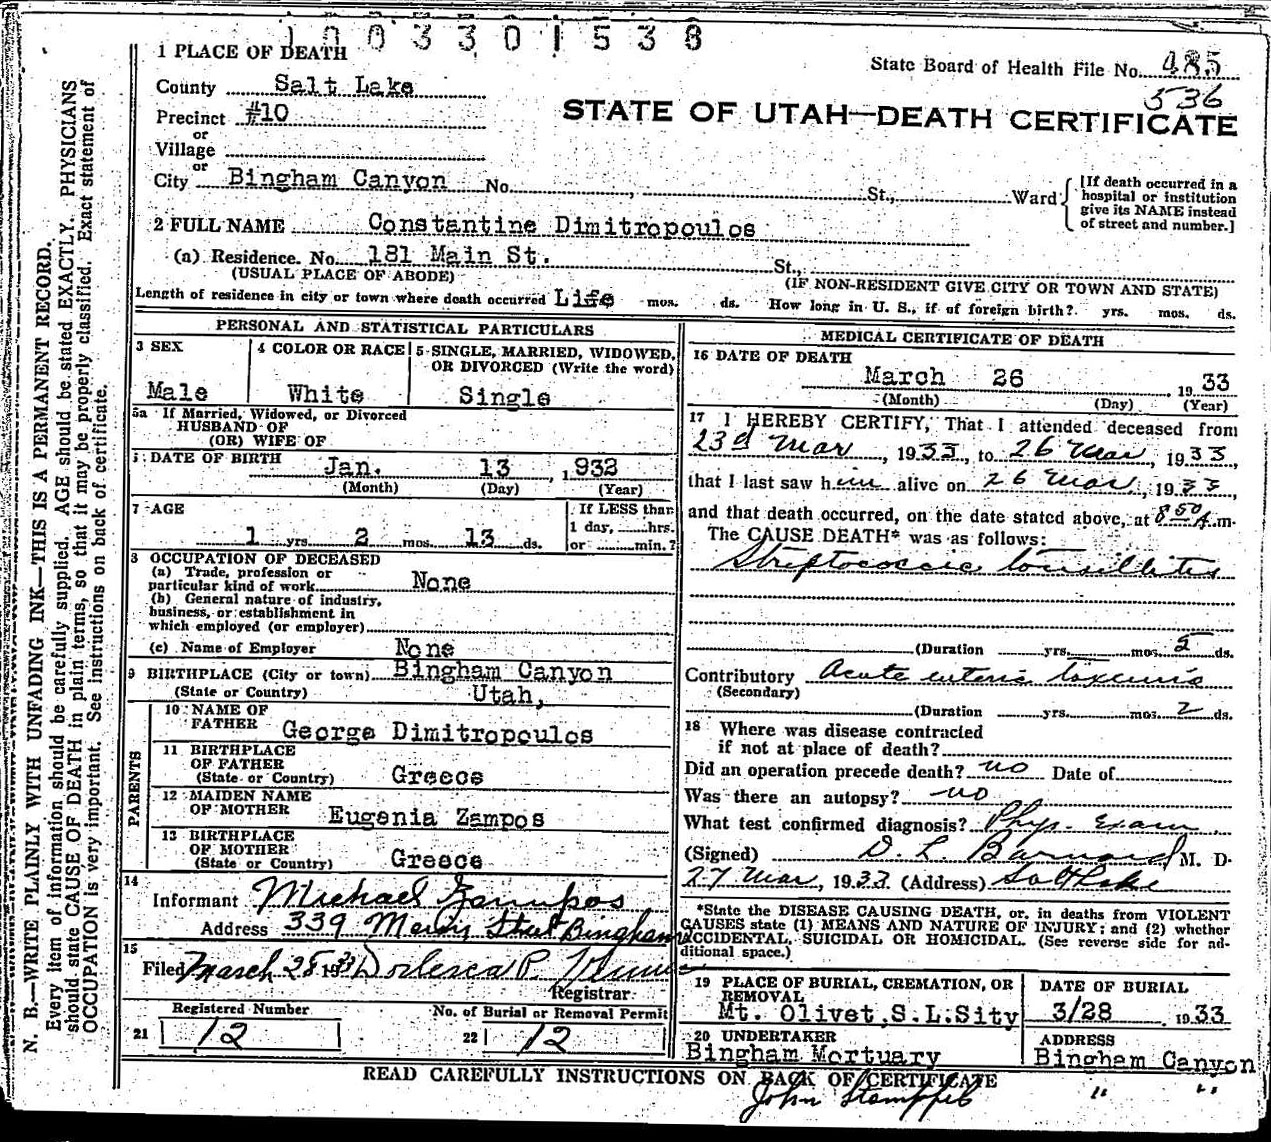 1003301538
1 PLACE OF DEATH
State Board of Health File No. 485
536
County Salt Lake
Precinct #10
or
Village
or
City Bingham Canyon No. St., Ward
[If death occurred in a
hospital or institution
give its NAME instead
of street and number.]
STATE OF UTAH—DEATH CERTIFICATE
2 FULL NAME Constantine Dimitropoulos
(a) Residence. No. 181 Main St. St.,
(USUAL PLACE OF ABODE) (IF NON-RESIDENT GIVE CITY OR TOWN AND STATE)
Length of residence in city or town where death occurred Life mos. ds. How long in U. S., if of foreign birth? yrs. mos. ds.
PERSONAL AND STATISTICAL PARTICULARS
3 SEX
Male
4 COLOR OR RACE
White
5 SINGLE, MARRIED, WIDOWED,
OR DIVORCED (Write the word)
Single
5a If Married, Widowed, or Divorced
HUSBAND OF
(OR) WIFE OF
DATE OF BIRTH Jan. 13, 1932
(Month) (Day) (Year)
7 AGE
1 yrs. 2 mos. 13 ds.
If LESS than
1 day, hrs.
or min.?
8 OCCUPATION OF DECEASED
(a) Trade, profession or
particular kind of work None
(b) General nature of industry,
business, or establishment in
which employed (or employer)
(c) Name of Employer None
9 BIRTHPLACE (City or town) Bingham Canyon
(State or Country) Utah,
PARENTS
10 NAME OF
FATHER George Dimitropoulos
11 BIRTHPLACE
OF FATHER
(State or Country) Greece
12 MAIDEN NAME
OF MOTHER Eugenia Zampos
13 BIRTHPLACE
OF MOTHER
(State or Country) Greece
14
Informant Michael Zampos
Address 339 Main Street Bingham
15
Filed March 28 1933
Registrar.
Registered Number
21 12
No. of Burial or Removal Permit
22 12
MEDICAL CERTIFICATE OF DEATH
16 DATE OF DEATH
March 26 1933
(Month) (Day) (Year)
17 I HEREBY CERTIFY, That I attended deceased from
23d Mar, 1933, to 26 Mar, 1933,
that I last saw him alive on 26 Mar, 1933,
and that death occurred, on the date stated above, at 8 50 A.m.
The CAUSE DEATH* was as follows:
Streptococcic tonsillitis
(Duration yrs. mos. 5 ds.
Contributory Acute enteric toxemia
(Secondary)
(Duration yrs. mos. 2 ds.
18 Where was disease contracted
if not at place of death?
Did an operation precede death? no Date of
Was there an autopsy? no
What test confirmed diagnosis? Phys. Exam
(Signed) D. L. Barnard M. D.
27 Mar, 1933 (Address) Salt Lake
*State the DISEASE CAUSING DEATH, or, in deaths from VIOLENT
CAUSES state (1) MEANS AND NATURE OF INJURY; and (2) whether
ACCIDENTAL, SUICIDAL OR HOMICIDAL. (See reverse side for ad-
ditional space.)
19 PLACE OF BURIAL, CREMATION, OR
REMOVAL
Mt. Olivet, S.L.Sity
DATE OF BURIAL
3/28 1933
20 UNDERTAKER
Bingham Mortuary
ADDRESS
Bingham Canyon
READ CAREFULLY INSTRUCTIONS ON BACK OF CERTIFICATE
John " "
N. B.—WRITE PLAINLY WITH UNFADING INK—THIS IS A PERMANENT RECORD.
Every item of information should be carefully supplied. AGE should be stated EXACTLY. PHYSICIANS
should state CAUSE OF DEATH in plain terms, so that it may be properly classified. Exact statement of
OCCUPATION is very important. See instructions on back of certificate.